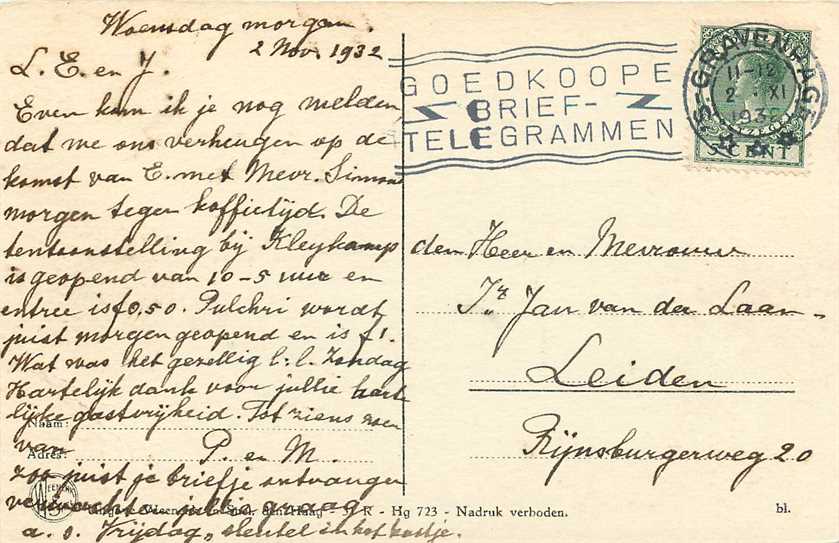 Woensdag morgen.
2 Nov. 1932
L. E. en J.
Even kom ik je nog melden
dat we ons verheugen op de
komst van E. met Mevr. Simon
morgen tegen koffietijd. De
tentoonstelling bij Kleykamp
is geopend van 10-5 uur en
entree is f0,50. Pulchri wordt
juist morgen geopend en is f1.
Wat was het gezellig l.l. Zondag
Hartelijk dank voor jullie harte
lijke gastvrijheid. Tot ziens zoen
van P. en M.
zoo juist je briefje ontvangen
jullie graag
a.s. Vrijdag, sleutel in het kastje.
Naam:
Adres:
GOEDKOOPE
BRIEF-
TELEGRAMMEN
'S-GRAVENHAGE
11-12
2 XI
1932
5 CENT
den Heer en Mevrouw
Jr. Jan van der Laan-
Leiden
Rijnsburgerweg 20
den Haag - R - Hg 723 - Nadruk verboden.
bl.